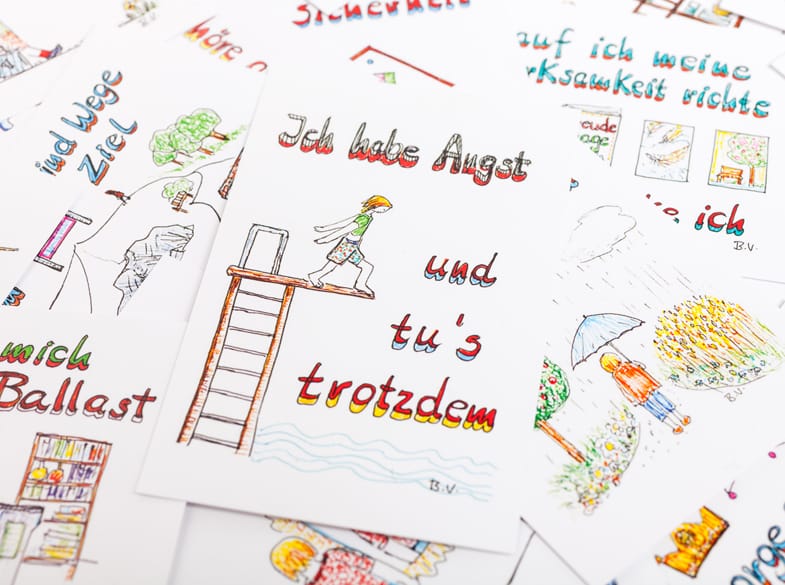 Sicherheit
höre
auf ich meine
rksamkeit richte
eude
age
ich
B.V.
und Wege
Ziel
Ich habe Angst
und
tu's
trotzdem
B.V.
mich
Ballast
B.V.
orge